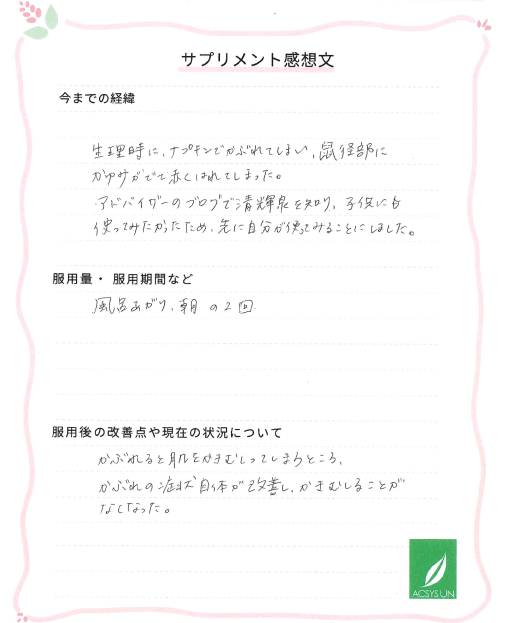 サプリメント感想文
今までの経緯
生理時に、ナプキンでかぶれてしまい、鼠径部に
かゆみがでて赤くはれてしまった。
アドバイザーのブログで清輝泉を知り、子供にも
使ってみたかったため、先に自分が使ってみることにしました。
服用量・服用期間など
風呂あがり、朝 の2回
服用後の改善点や現在の状況について
かぶれると肌をかきむしってしまうところ、
かぶれの症状自体が改善し、かきむしることが
なくなった。
ACSYSUN